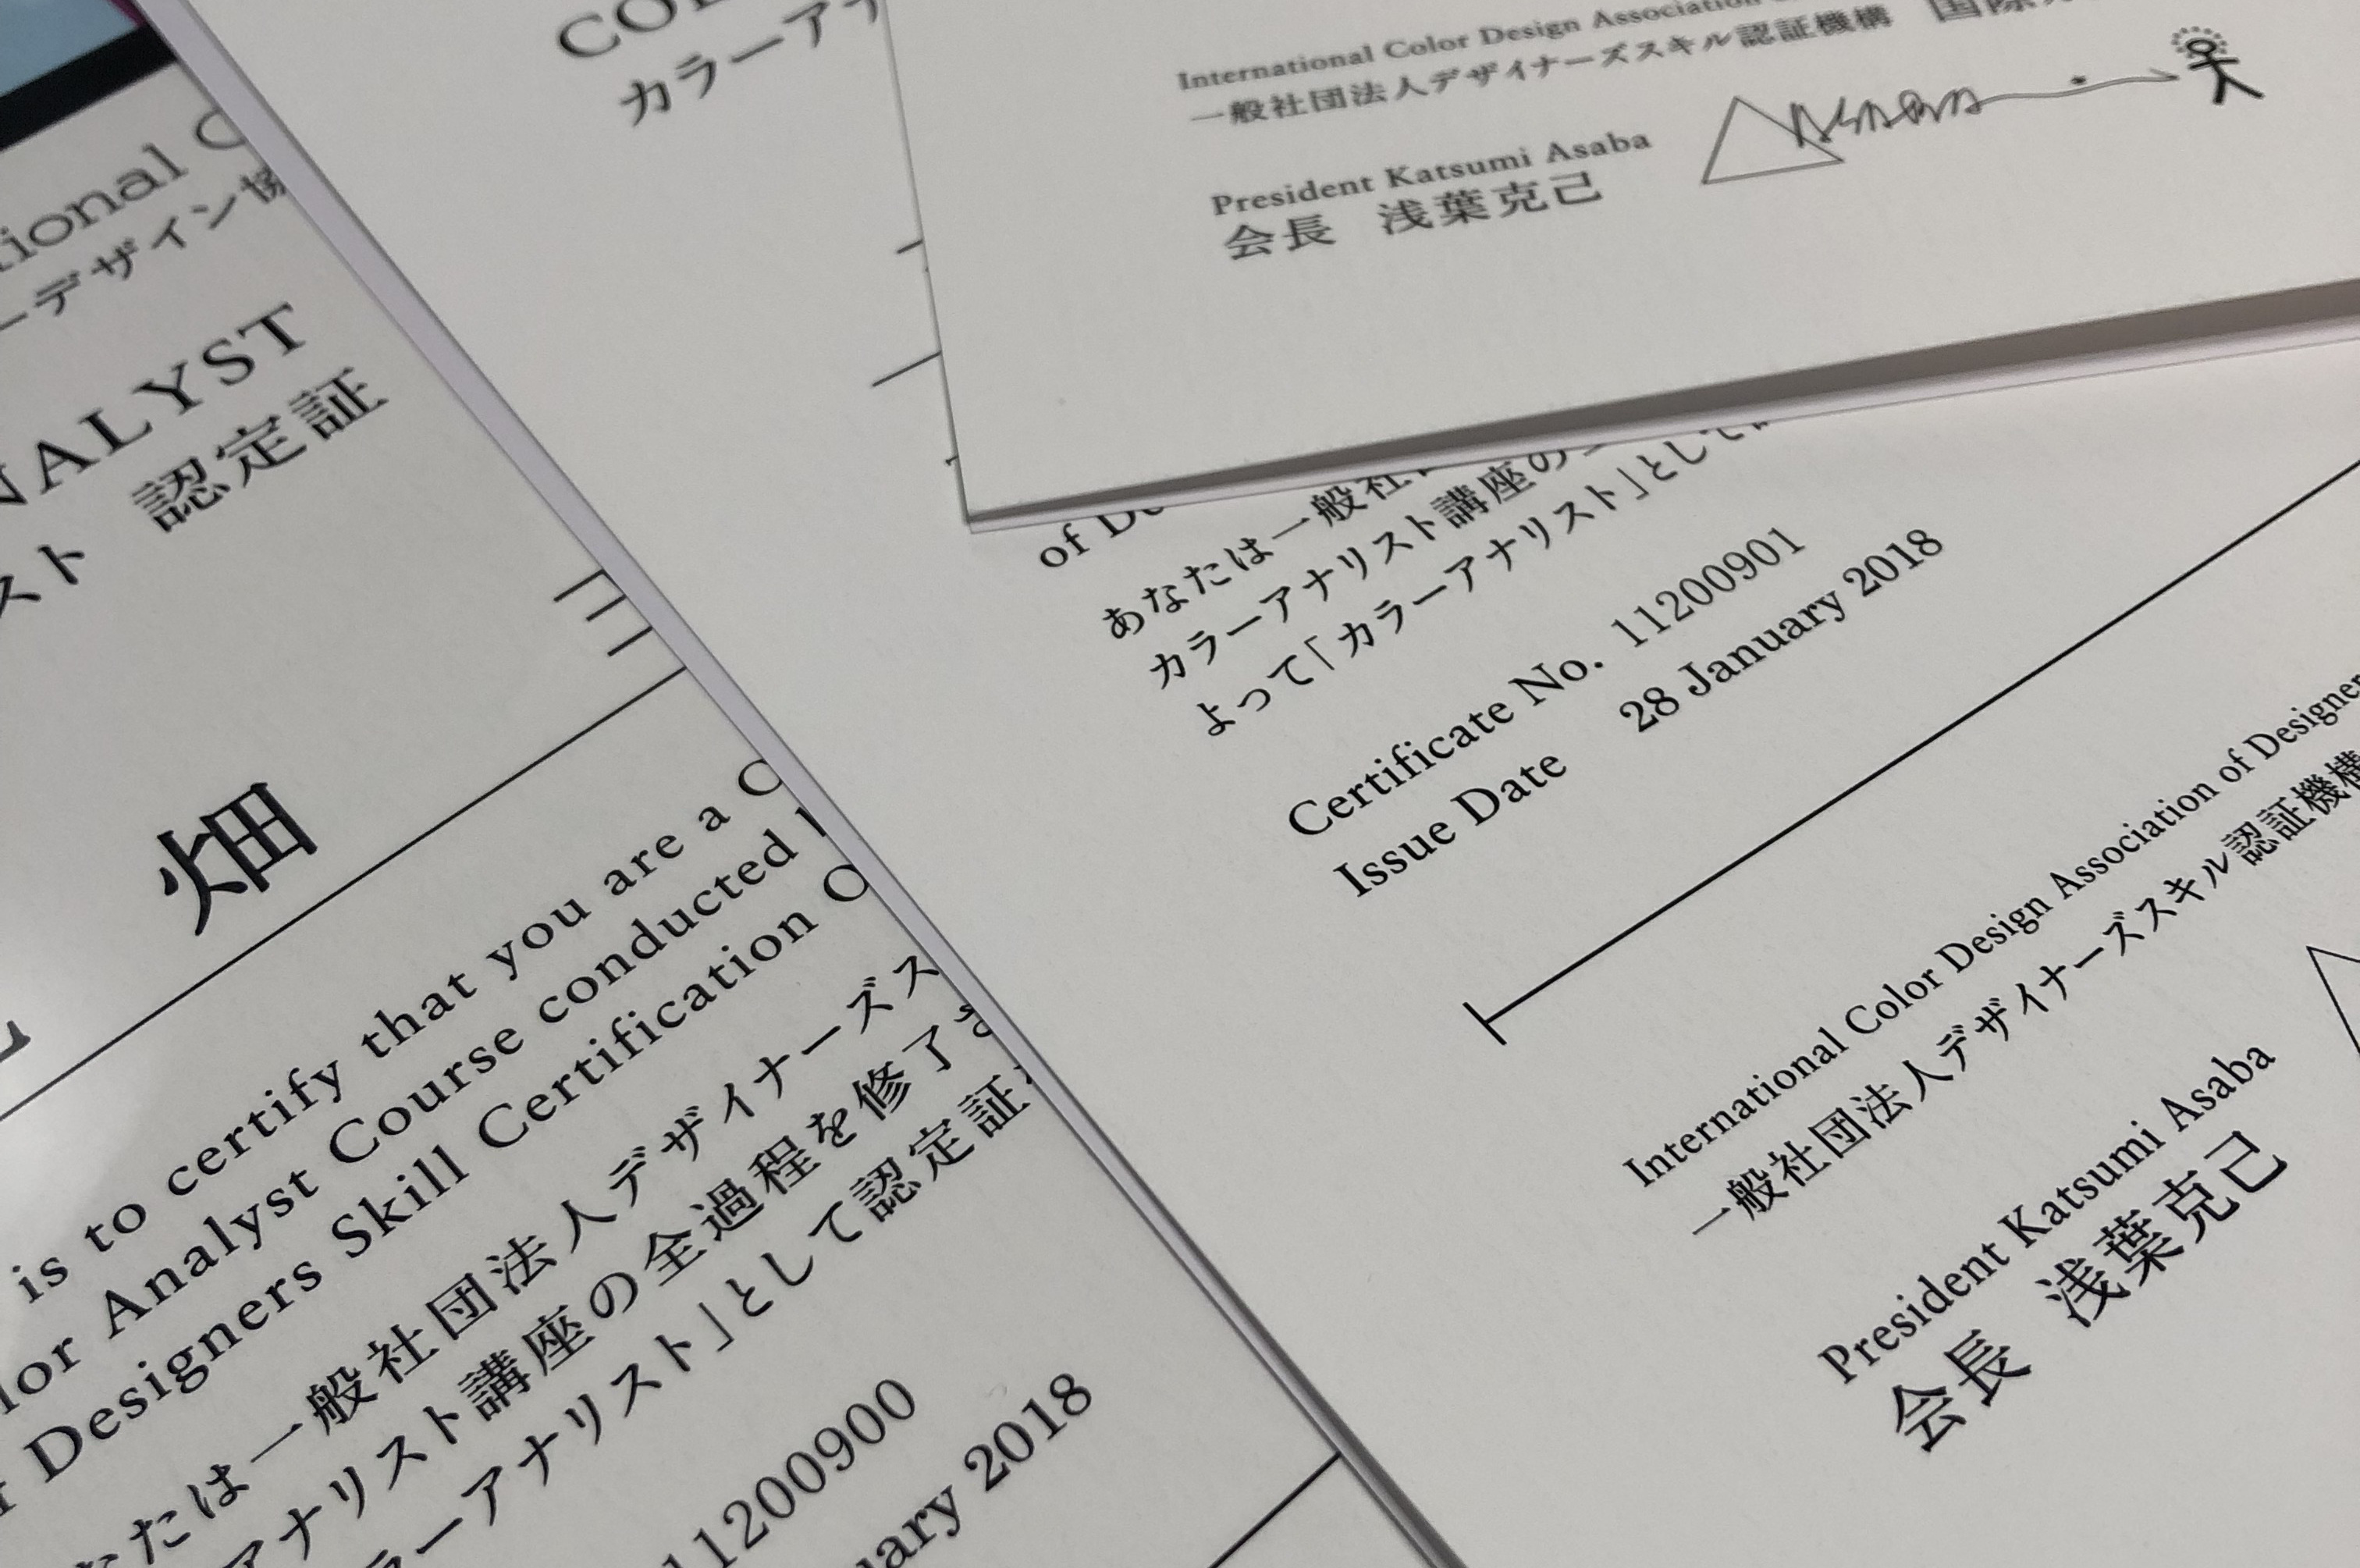 tional C
ーデザイン協
NALYST
スト 認定証
畑
is to certify that you are a C
lor Analyst Course conducted
Designers Skill Certification O
たは一般社団法人デザイナーズス
アナリスト講座の全過程を修了ま
ーアナリスト」として認定証
11200900
uary 2018
COL
カラーアナ
of De
あなたは一般社
カラーアナリスト講座の
よって「カラーアナリスト」として
Certificate No. 11200901
Issue Date 28 January 2018
International Color Design Association of Designer
一般社団法人デザイナーズスキル認証機構
President Katsumi Asaba
会長 浅葉克己
International Color Design Association
一般社団法人デザイナーズスキル認証機構 国際
President Katsumi Asaba
会長 浅葉克己
Asaba